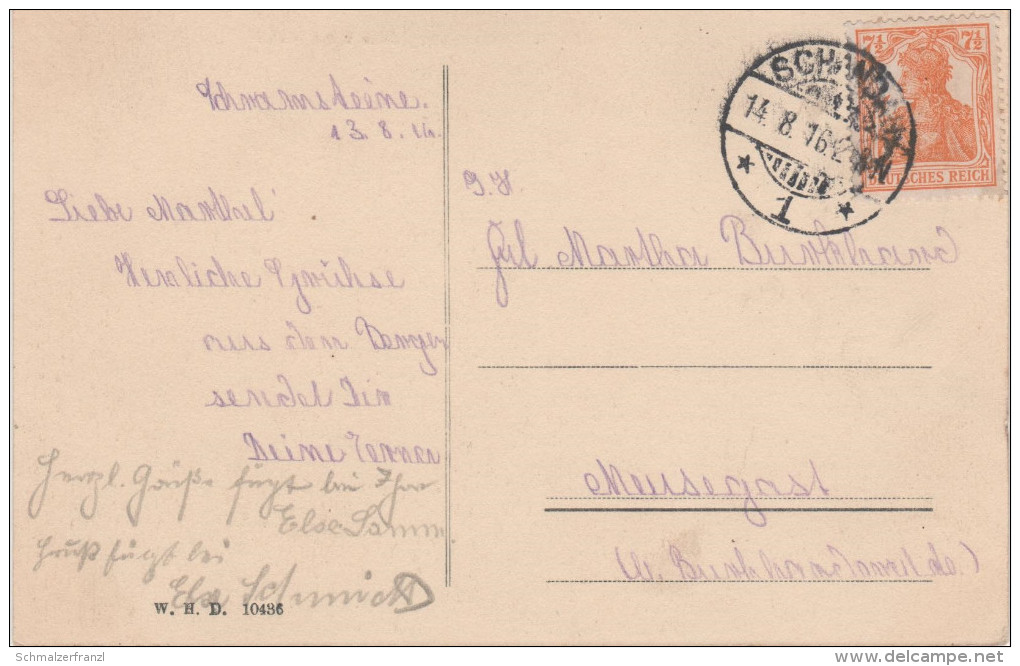 Schramsteine.
13. 8. 16.
Liebe Marthel
Herzliche Grühse
aus den Berger
sendet Dir
Deine
Herzl. Grüße fügt bei Ihre
Else Lamm
Gruß fügt bei
Else Schmidt
W. H. D. 10436
SCHANDAU
14. 8. 16. 2-3 N
* 1 *
7½ 7½
DEUTSCHES REICH
Frl. Martha Burkhard
Meusegast
(b. Burkhardswalde.)
Schmalzerfranzl
delcampe.net